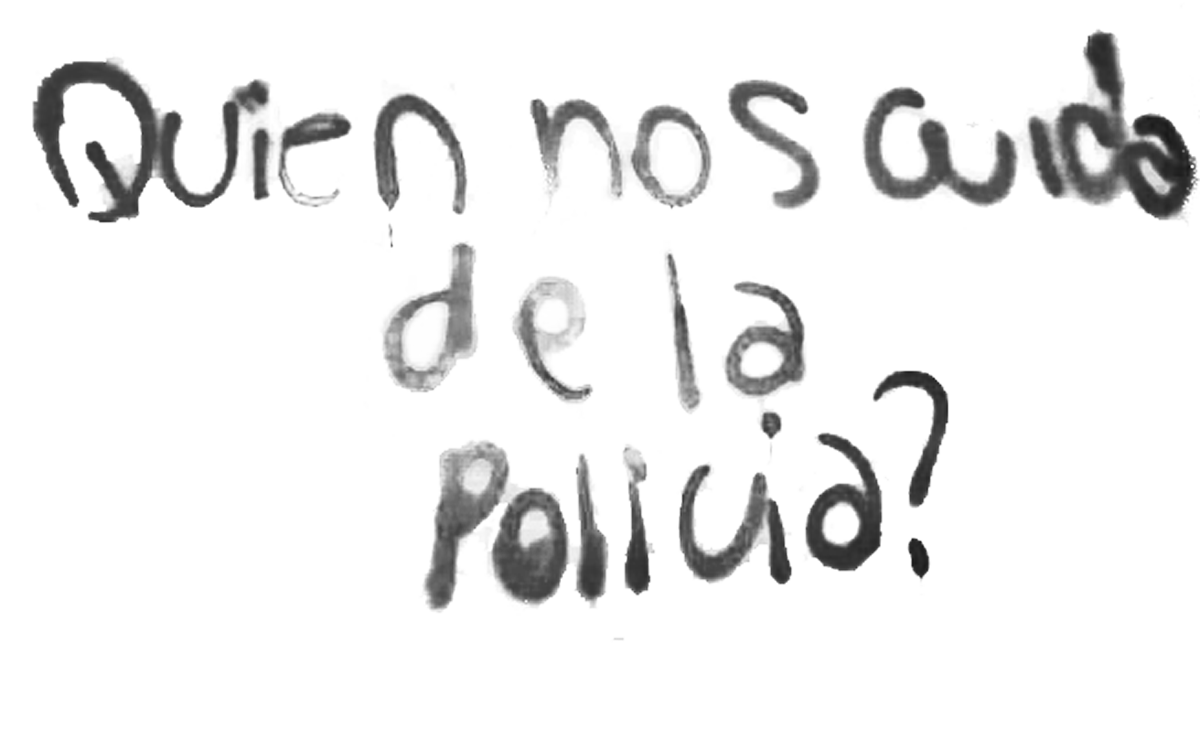 Quien nos cuida
de la
Policia?